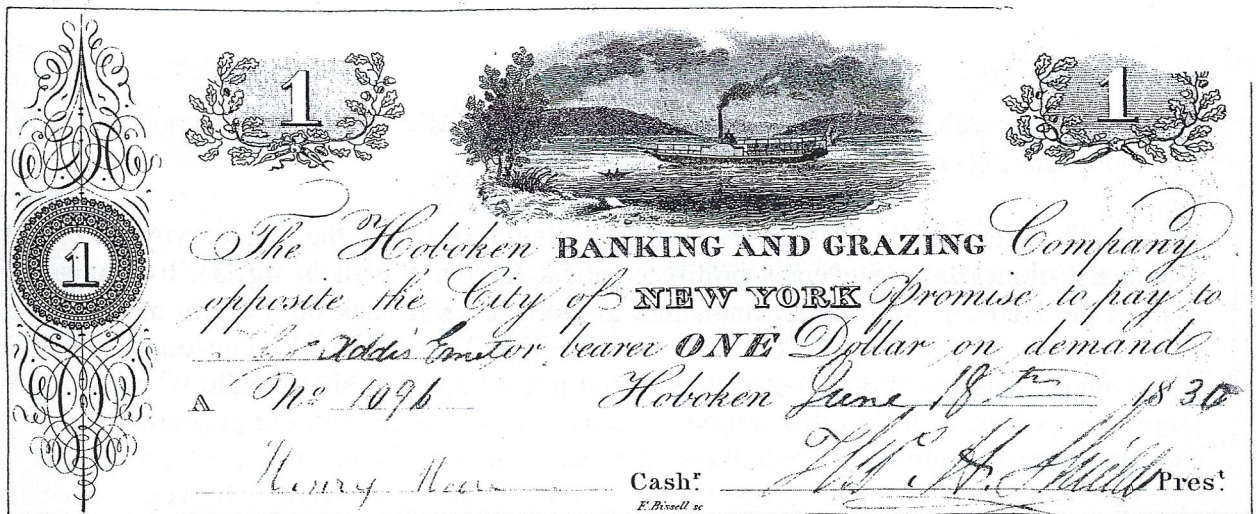 1 1
The Hoboken BANKING AND GRAZING Company
1
opposite the City of NEW YORK Promise to pay to
Emet or bearer ONE Dollar on demand
A No 1096 Hoboken June 18th 1830
Henry Cashr. Prest.
F. Bissell sc